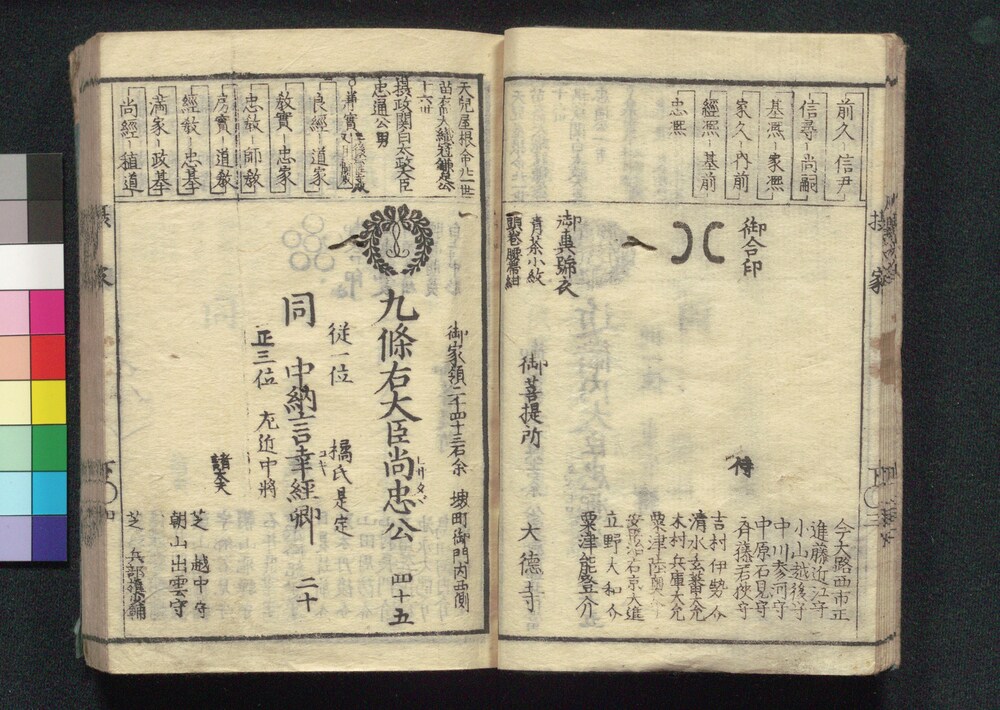 前久－信尹
信尋－尚嗣
基熙－家熙
家久－内前
經熙－基前
忠熙
御合印
御輿舁衣
青茶小紋
御菩提所
大徳寺
侍
今大路西市正
進藤近江守
小山越後守
中川参河守
中原石見守
斉藤若狭守
吉村伊勢介
清水玄蕃大允
木村兵庫大允
立野大和介
粟津能登介
摂家
天兒屋根命廿一世
苗裔大織冠鎌足公
十六世
摂政関白太政大臣
忠通公男
良經－道家
教實－忠家
忠教－師教
房實－道教
經教－忠基
満家－政基
尚經－稙通
御家領二千四十三石余
堺町御門内西側
九條右大臣尚忠公
四十五
従一位
橘氏是定
同　中納言幸經卿
二十
正三位
左近中将
諸大夫
芝　越中守
朝山出雲守
芝　兵部権少輔